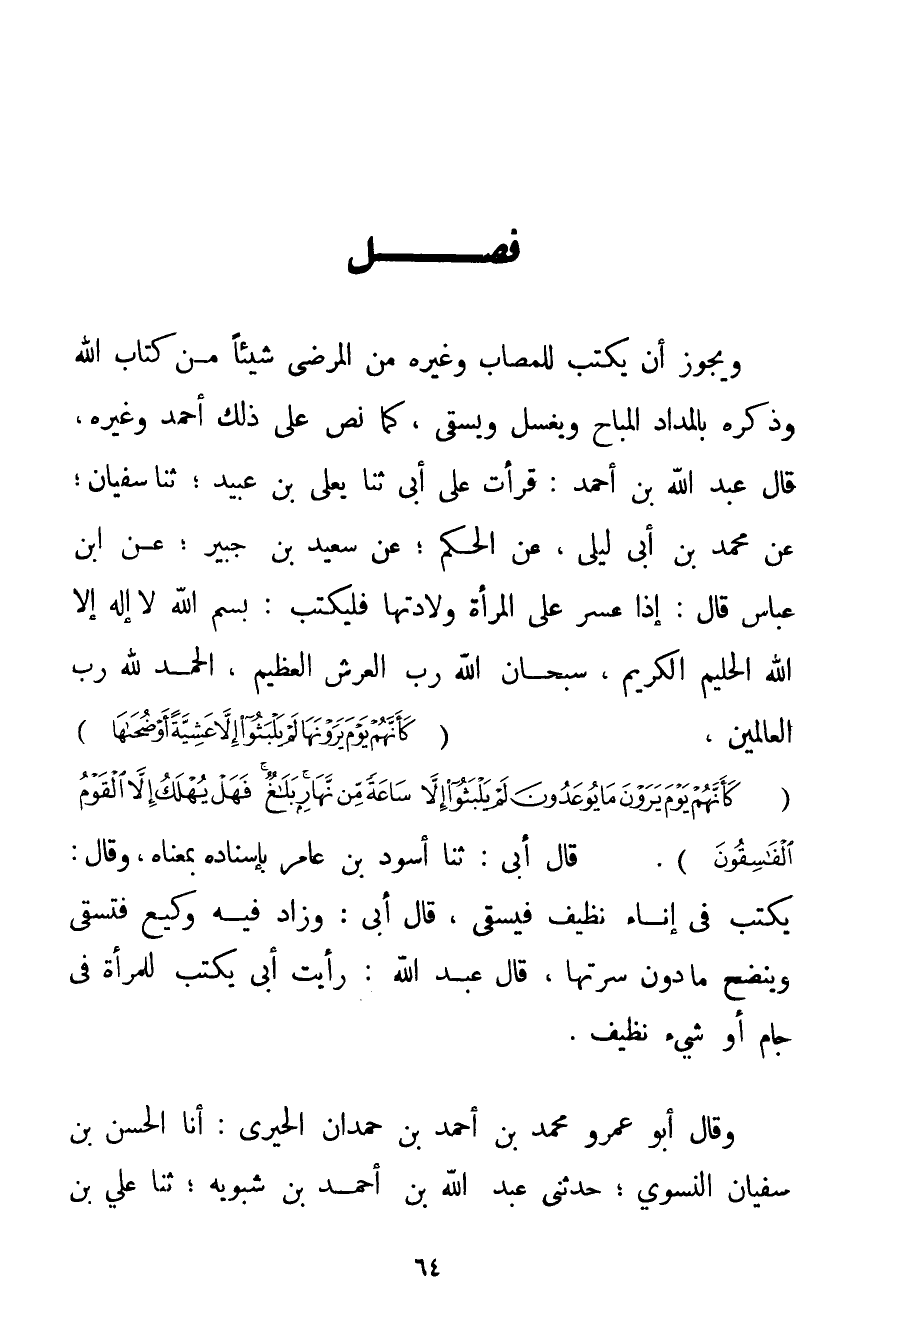 فصـــــــل
ويجوز أن يكتب للمصاب وغيره من المرضى شيئاً مـن كتاب الله
وذكره بالمداد المباح ويغسل ويسقى ، كما نص على ذلك أحمد وغيره ،
قال عبد الله بن أحمد : قرأت على أبى ثنا يعلى بن عبيد ؛ ثنا سفيان ؛
عن محمد بن أبى ليلى ، عن الحكم ؛ عن سعيد بن جبير ؛ عـن ابن
عباس قال : إذا عسر على المرأة ولادتها فليكتب : بسم الله لا إله إلا
الله الحليم الكريم ، سبحـان الله رب العرش العظيم ، الحمـد لله رب
العالمين ، ( كَأَنَّهُمْ يَوْمَ يَرَوْنَهَا لَمْ يَلْبَثُوٓا۟ إِلَّا عَشِيَّةً أَوْ ضُحَىٰهَا )
( كَأَنَّهُمْ يَوْمَ يَرَوْنَ مَا يُوعَدُونَ لَمْ يَلْبَثُوٓا۟ إِلَّا سَاعَةً مِّن نَّهَارٍۭ ۚ بَلَٰغٌ ۚ فَهَلْ يُهْلَكُ إِلَّا ٱلْقَوْمُ
ٱلْفَٰسِقُونَ ) . قال أبى : ثنا أسود بن عامر بإسناده بمعناه ، وقال :
يكتب فى إنـاء نظيف فيسقى ، قال أبى : وزاد فيـه وكيـع فتسقى
وينضح ما دون سرتها ، قال عبـد الله : رأيت أبى يكتب للمرأة فى
جام أو شيء نظيف .
وقال أبو عمرو محمد بن أحمد بن حمدان الحيرى : أنا الحسن بن
سفيان النسوي ؛ حدثنى عبد الله بن أحمـد بن شبويه ؛ ثنا علي بن
٦٤